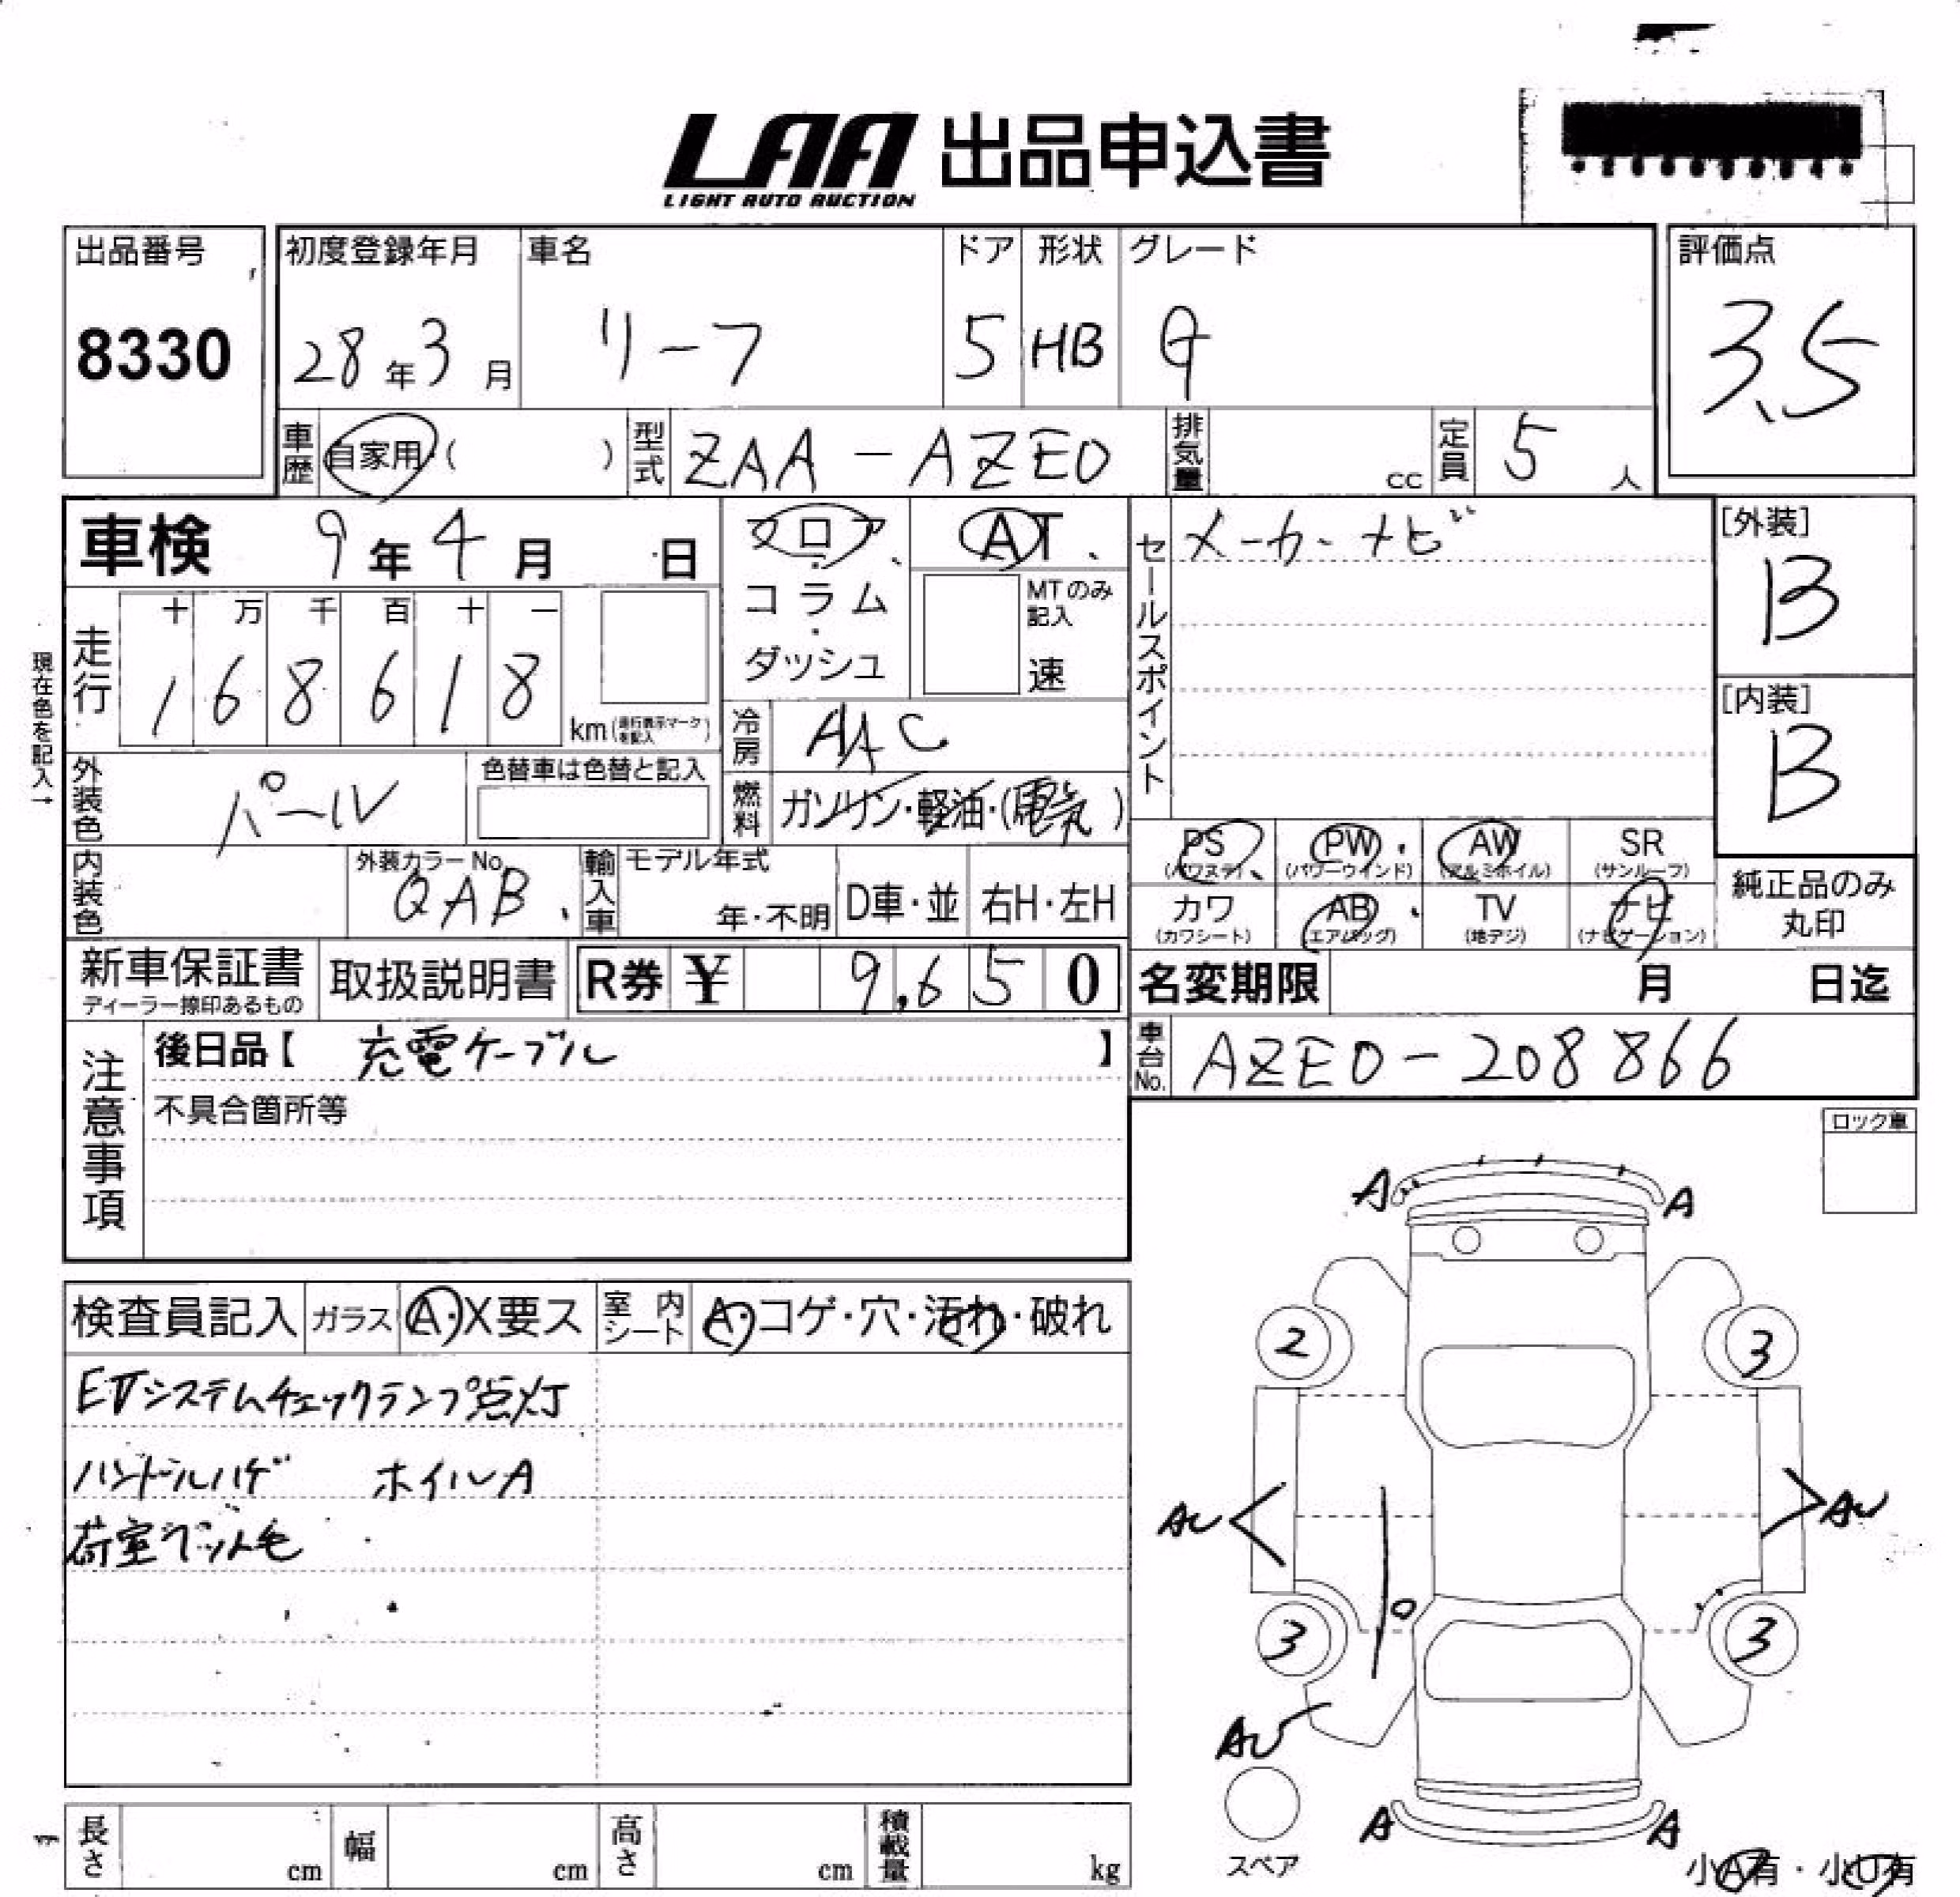 LAA 出品申込書
LIGHT AUTO AUCTION
出品番号
8330
初度登録年月
28年3月
車名
リーフ
ドア
5
形状
HB
グレード
G
評価点
3.5
車歴
自家用 ( )
型式
ZAA-AZE0
排気量
cc
定員
5人
車検 9年4月 日
フロア・コラム・ダッシュ
AT
MTのみ記入
速
セールスポイント
メーカーナビ
[外装]
B
[内装]
B
現在色を記入→
走行
十 万 千 百 十 一
1 6 8 6 1 8
km (走行表示マークを記入)
冷房
AAC
外装色
パール
色替車は色替と記入
燃料
ガソリン・軽油・(電気)
内装色
外装カラーNo.
QAB
輸入車
モデル年式
年・不明
D車・並
右H・左H
PS
(パワステ)
PW
(パワーウインド)
AW
(アルミホイル)
SR
(サンルーフ)
カワ
(カワシート)
AB
(エアバッグ)
TV
(地デジ)
ナビ
(ナビゲーション)
純正品のみ
丸印
新車保証書
ディーラー捺印あるもの
取扱説明書
R券 ¥ 9,650
名変期限 月 日迄
注意事項
後日品【 充電ケーブル 】
不具合箇所等
車台No.
AZE0-208866
ロック車
検査員記入
ガラス
A・X要ス
室内シート
A・コゲ・穴・汚れ・破れ
EVシステムチェックランプ点灯
ハンドルハゲ ホイルA
荷室ペット毛
A A
2 3
AU AU
3 3
AU
スペア
A A
小A有・小U有
長さ cm
幅 cm
高さ cm
積載量 kg